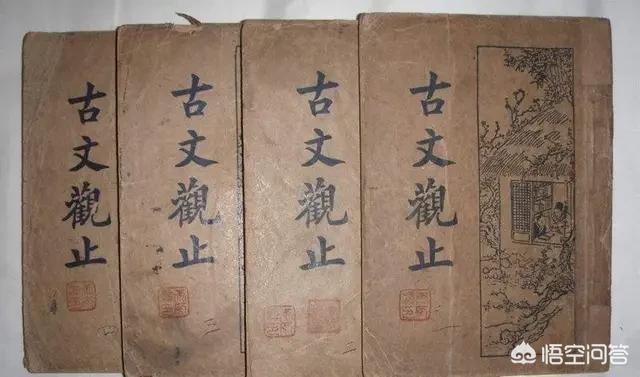 古文觀止
四
古文觀止
三
古文觀止
二
古文觀止
一
悟空问答